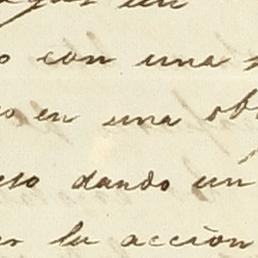 un
o con una
o en una ob
eto dando un
la acción